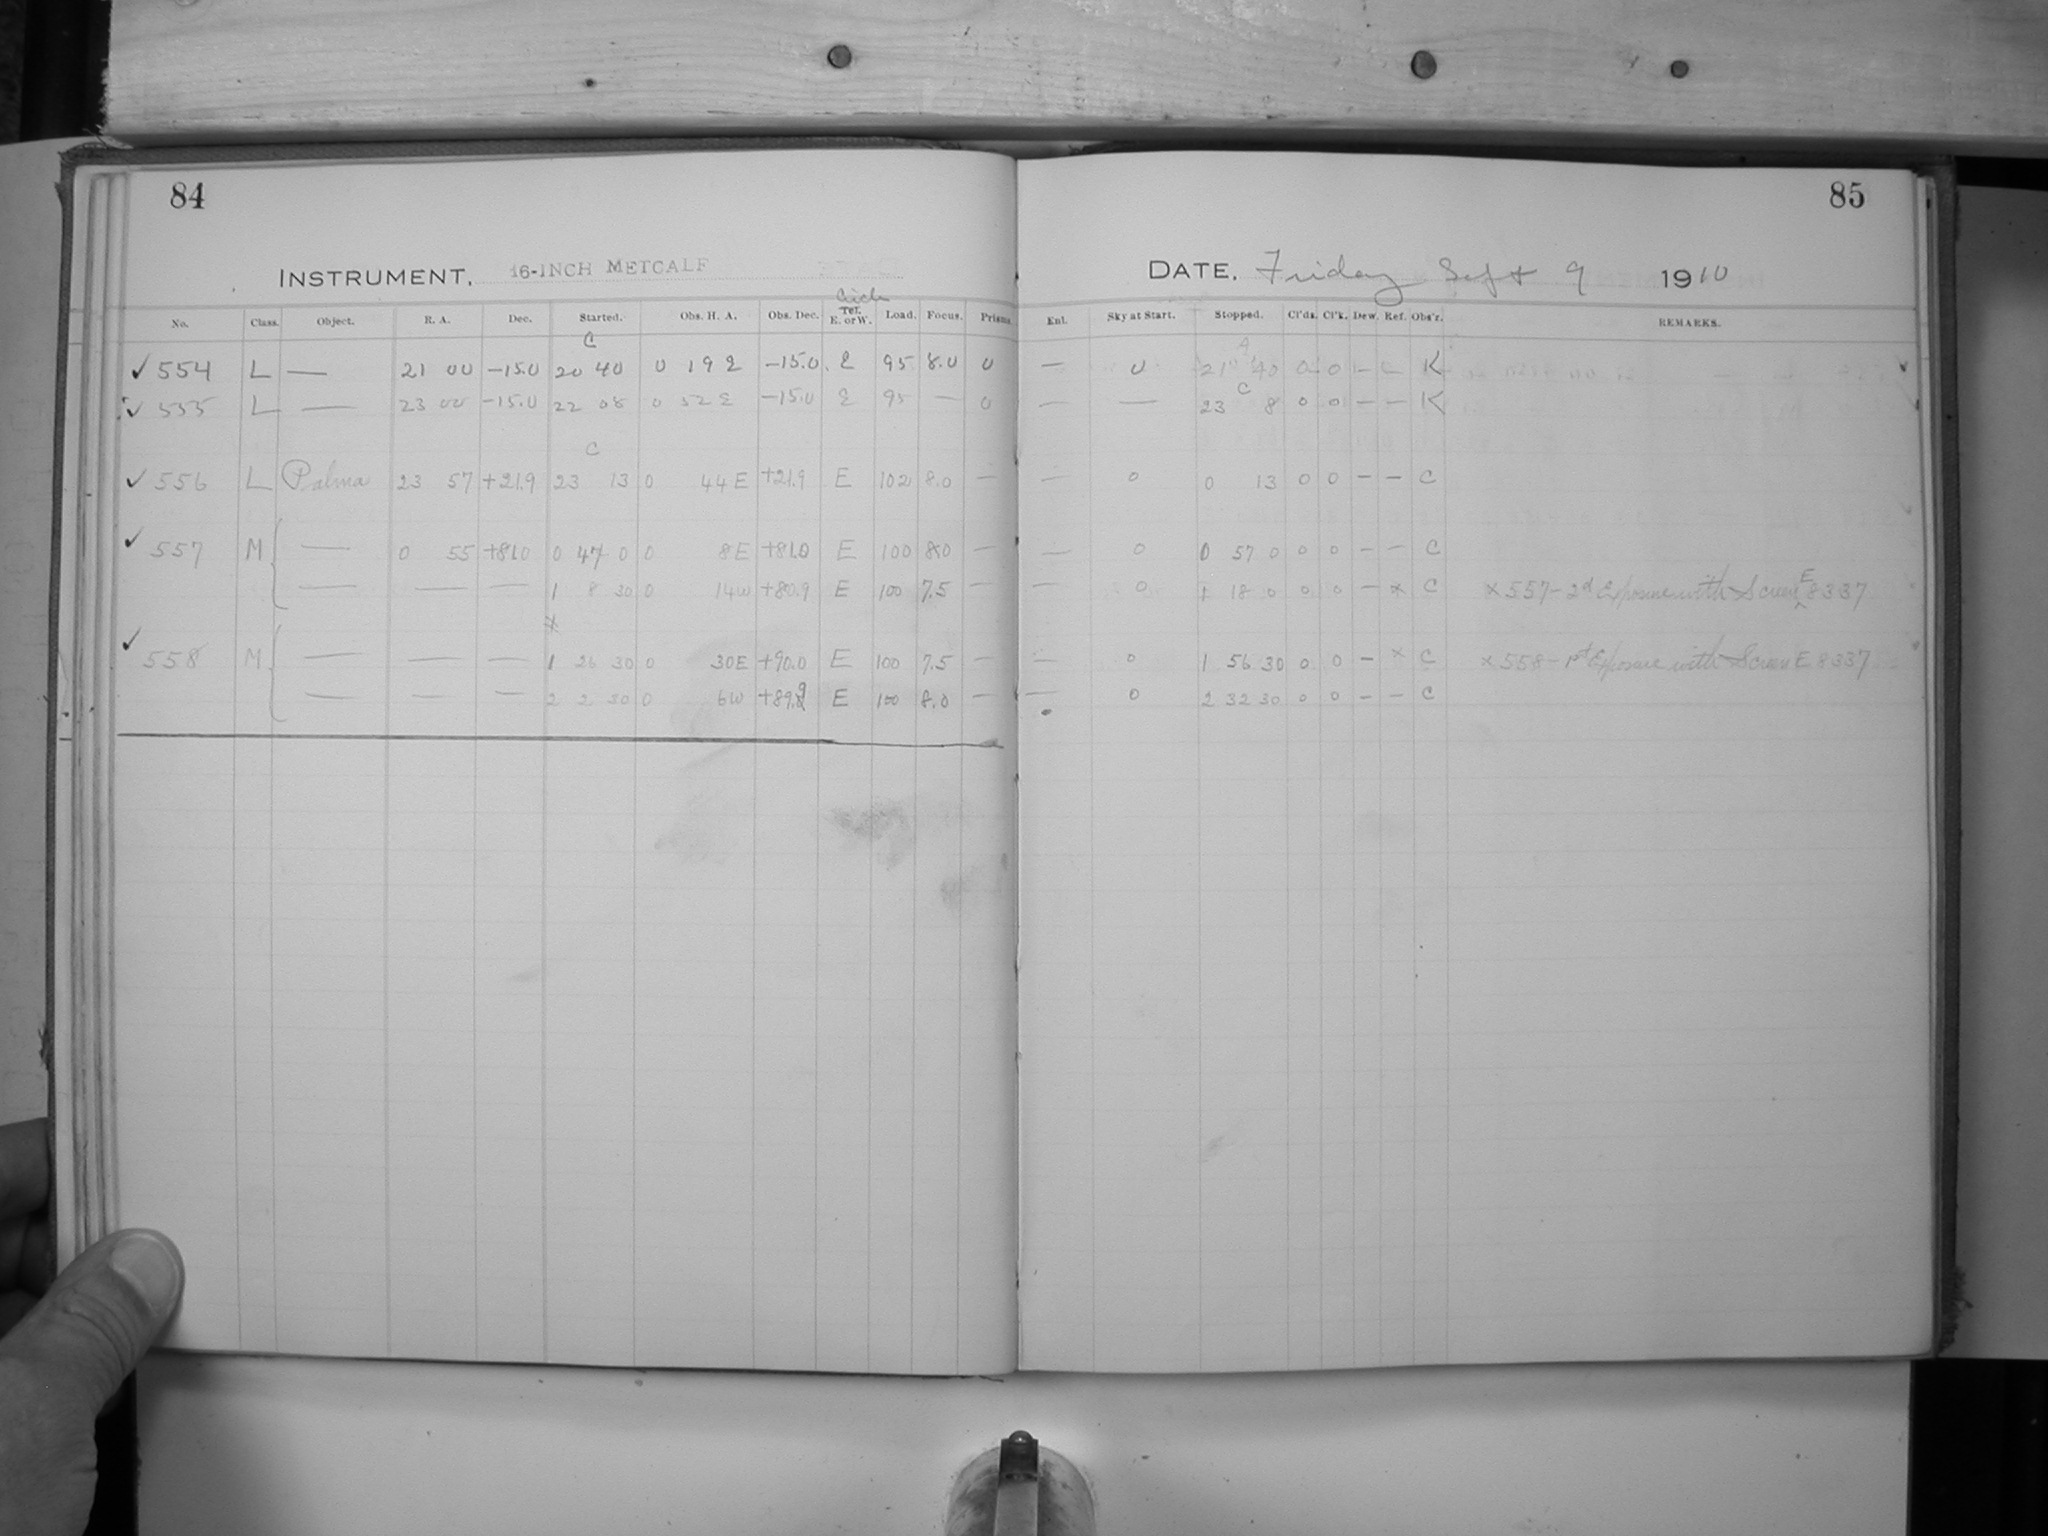 84
85
INSTRUMENT, 16-INCH METCALF
DATE, Friday Sept 9 1910
No. Class. Object. R. A. Dec. Started. Obs. H. A. Obs. Dec. Circle Tel. E. or W. Load. Focus. Prisms Enl. Sky at Start. Stopped. Cl'ds. Cl'k. Dew. Ref. Obs'r. REMARKS.
C
✓ 554 L — 21 00 -15.0 20 40 0 19 E -15.0 E 95 8.0 0 — 0 21 40 0 0 — — K
C
✓ 555 L — 23 00 -15.0 22 08 0 52 E -15.0 E 95 — 0 — — 23 8 0 0 — — K
C
✓ 556 L Palma 23 57 +21.9 23 13 0 44 E +21.9 E 102 8.0 — — 0 0 13 0 0 — — C
✓ 557 M — 0 55 +81.0 0 47 0 0 8E +81.0 E 100 8.0 — — 0 0 57 0 0 0 — — C
— — — 1 8 30 0 14W +80.9 E 100 7.5 — — 0 1 18 0 0 0 — x C x 557 - 2d Exposure with Screen E 8337
x
✓ 558 M — — — 1 26 30 0 30E +90.0 E 100 7.5 — — 0 1 56 30 0 0 — x C x 558 - 1st Exposure with Screen E 8337
— — — 2 2 30 0 6W +89.9 E 100 8.0 — — 0 2 32 30 0 0 — — C